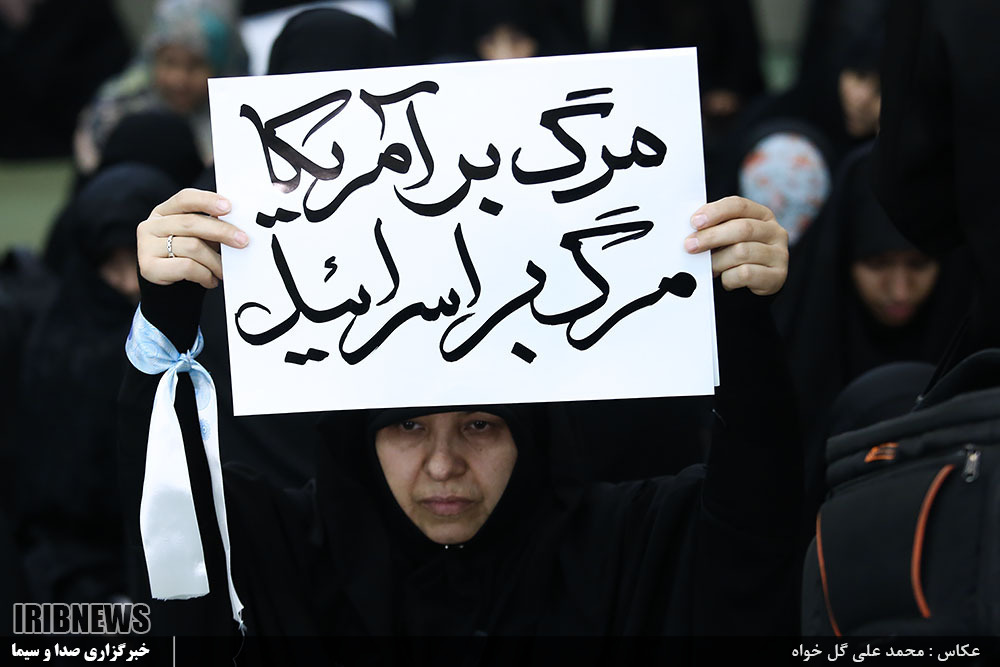 مرگ بر آمریکا
مرگ بر اسرائیل
IRIBNEWS
خبرگزاری صدا و سیما
عکاس : محمد علی گل خواه